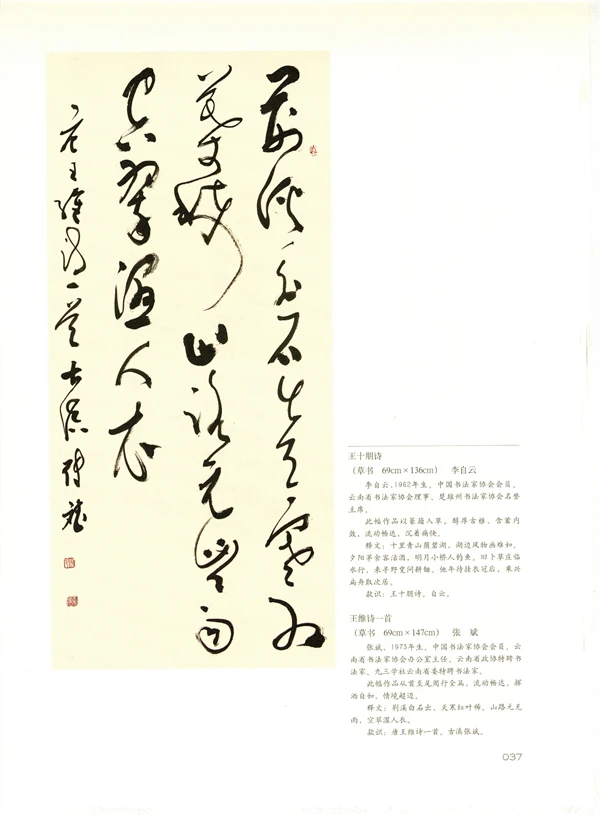 荆溪白石出天寒紅
葉稀山路元無雨
空翠濕人衣
唐王維詩一首 古滇張斌
王十朋诗
（草书 69cm×136cm） 李自云
李自云，1962年生。中国书法家协会会员，
云南省书法家协会理事、楚雄州书法家协会名誉
主席。
此幅作品以篆籀入草，醇厚古雅，含蓄内
敛，流动畅达，沉着痛快。
释文：十里青山荫碧湖，湖边风物画难如。
夕阳茅舍客沽酒，明月小桥人钓鱼。旧卜草庄临
水竹，来寻野叟问耕锄。他年待挂衣冠后，乘兴
扁舟取次居。
款识：王十朋诗。自云。
王维诗一首
（草书 69cm×147cm） 张 斌
张斌，1973年生。中国书法家协会会员，云
南省书法家协会办公室主任、云南省政协特聘书
法家、九三学社云南省委特聘书法家。
此幅作品从首至尾周行全篇，流动畅达，挥
洒自如，情境超迈。
释文：荆溪白石出，天寒红叶稀。山路元无
雨，空翠湿人衣。
款识：唐王维诗一首。古滇张斌。
037